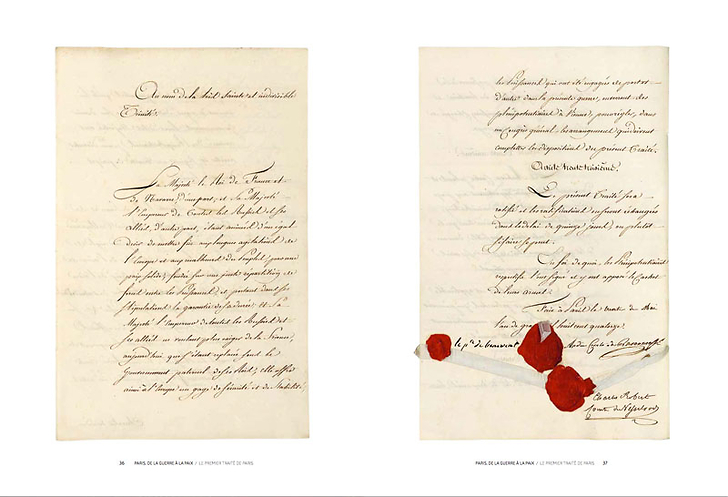 Au nom de la très Sainte et indivisible
Trinité.
Sa Majesté le Roi de France et
de Navarre, d'une part, et Sa Majesté
l'Empereur de toutes les Russies et ses
alliés, d'autre part, étant animés d'un égal
désir de mettre fin aux longues agitations de
l'Europe et aux malheurs des Peuples, par une
paix solide, fondée sur une juste répartition de
forces entre les Puissances, et portant dans ses
stipulations la garantie de sa durée, et Sa
Majesté l'Empereur de toutes les Russies et
ses alliés ne voulant plus exiger de la France,
aujourd'hui que s'étant replacée sous le
Gouvernement paternel de ses Rois, elle offre
ainsi à l'Europe un gage de sécurité et de stabilité,
36 PARIS, DE LA GUERRE À LA PAIX / LE PREMIER TRAITÉ DE PARIS
les Puissances qui ont été engagées de part et
d'autre dans la présente guerre, enverront des
plénipotentiaires à Vienne, pour régler, dans
un Congrès général, les arrangements qui doivent
compléter les dispositions du présent Traité.
Article trente troisième.
Le présent Traité sera
ratifié et les ratifications en seront échangées
dans le délai de quinze jours, ou plutôt
si faire se peut.
En foi de quoi, les Plénipotentiaires
respectifs l'ont signé et y ont apposé le Cachet
de leurs armes.
Fait à Paris le trente de Mai
l'an de grâce huit cent quatorze.
le p.ce de Benevent
André Comte de
Charles Robert
Comte de Nesselrode
PARIS, DE LA GUERRE À LA PAIX / LE PREMIER TRAITÉ DE PARIS 37